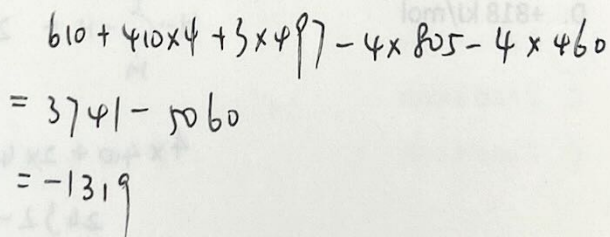 610 + 410×4 + 3×497 - 4×805 - 4×460
= 3741 - 5060
= -1319